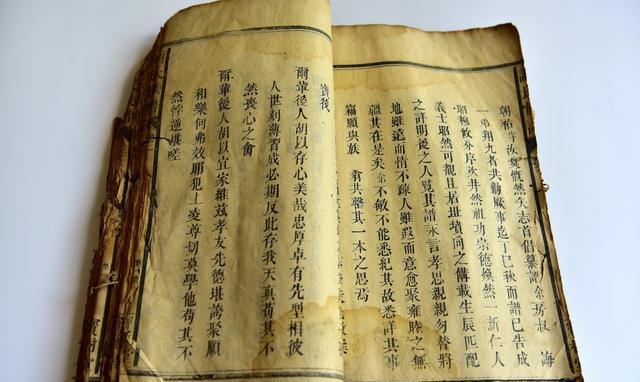 朝祐 汝翼慨然矢志首倡纂譜 余房叔 海
一弟翔九者共勷厥事迄丁巳秋而譜已告成
昭穆攸分序次井然祖功宗德煥然一新仁人
義士昭然可觀且居址墳向之傳載生辰匹配
之註明後之人覽其譜永言孝思親親勿替將
地雖遠而情不疎人雖遐而意愈聚雍睦之無
疆其在是矣余不敏不能悉紀其故悉詳其事
竊願與族 翕共罄其一本之思焉
爾輩後人胡以存心美哉忠厚卓有先型相彼
人世刻薄習成必期反此存我天真苟其不
然喪心之
爾輩後人胡以宜家維茲孝友先德堪誇聚順
和樂何弗效爾犯上凌尊切莫學他苟其不
然悖逆堪嗟